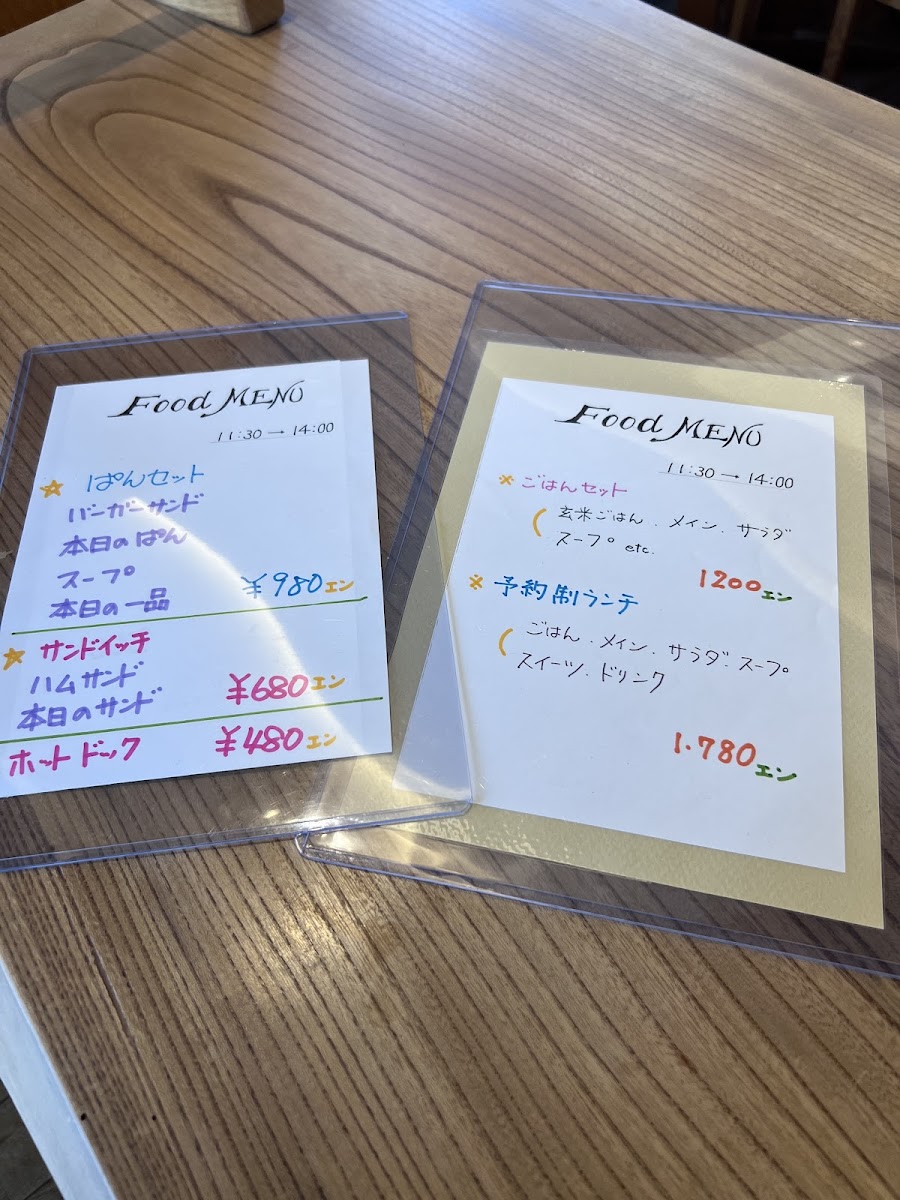 Food MENU
11:30 → 14:00
☆ ぱんセット
バーガーサンド
本日のぱん
スープ
本日の一品 ¥980エン
☆ サンドイッチ
ハムサンド
本日のサンド ¥680エン
ホットドック ¥480エン
Food MENU
11:30 → 14:00
※ ごはんセット
( 玄米ごはん . メイン . サラダ
スープ etc.
1200エン
※ 予約制ランチ
( ごはん . メイン . サラダ . スープ
スイーツ . ドリンク
1.780エン